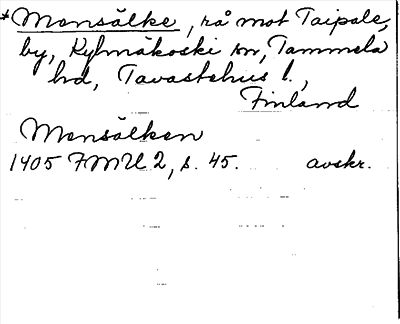 *Monsälke, rå mot Taipale,
by, Kylmäkoski sn, Tammela
hd, Tavastehus l.,
Finland
Monsälken
1405 FMU 2, s. 45. avskr.